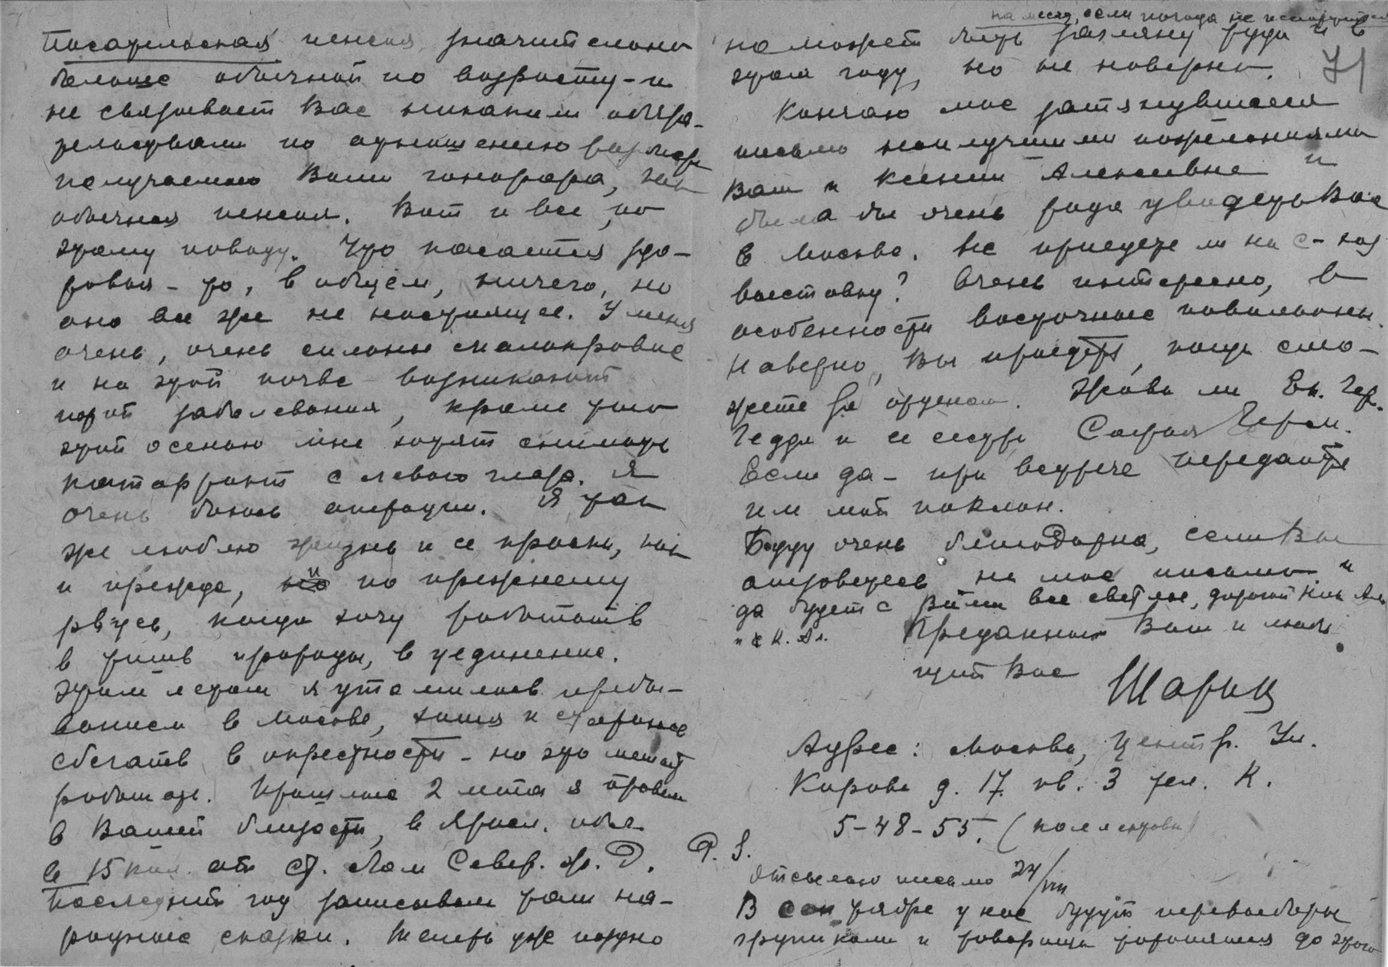 Писательская пенсия значительно
больше обычной по возрасту - и
не связывает Вас никакими обяза-
тельствами по отношению размера
получаемого Вами гонорара, как
обычная пенсия. Вот и все, по
этому поводу. Что касается здо-
ровья - то, в общем, ничего, но
оно все же не настоящее. У меня
очень, очень сильное малокровие
и на этой почве возникают
порой заболевания, кроме того
этой осенью мне хотят снимать
катаракт с левого глаза. Я
очень боюсь операции. Я так
же люблю жизнь и ее краски, как
и прежде, и по прежнему
рвусь, когда хочу работать
в тишь природы, в уединение.
Этим летом я утомилась пребы-
ванием в Москве, хотя и стараюсь
сбегать в окрестности - но это мешает
работать. Прошлые 2 лета я провела
в Вашей близости, в Яросл. обл.
в 15 км. от ст. Лом Север. ж. д.
Последний год записывала там на-
родные сказки. Теперь уже поздно
на месяц, если погода не испортится
но может быть загляну туда и в
этом году, но не наверно.
71
Кончаю мое затянувшееся
письмо наилучшими пожеланиями
Вам и Ксении Алексеевне и
была бы очень рада увидеть Вас
в Москве. Не приедете ли на с-хоз
выставку? Очень интересно, в
особенности восточные павильоны.
Наверно, Вы приедете, когда смо-
жете за орденом. Жива ли Ек. Гер.
Гедда и ее сестра София Герм.
Если да - при встрече передайте
им мой поклон.
Буду очень благодарна, если Вы
отзоветесь на мое письмо и
да будет с Вами все светлое, дорогой Ник. Ал.
и К. Ал. Преданный Вам и любя
щий Вас
Шариц
Адрес: Москва, центр. Ул.
Кирова д. 17 кв. 3 тел. К.
5-48-55. (коллективн)
P. S.
Отсылаю письмо 24/VIII
В сентябре у нас будут перевыборы
группкома и товарищи торопятся до этого